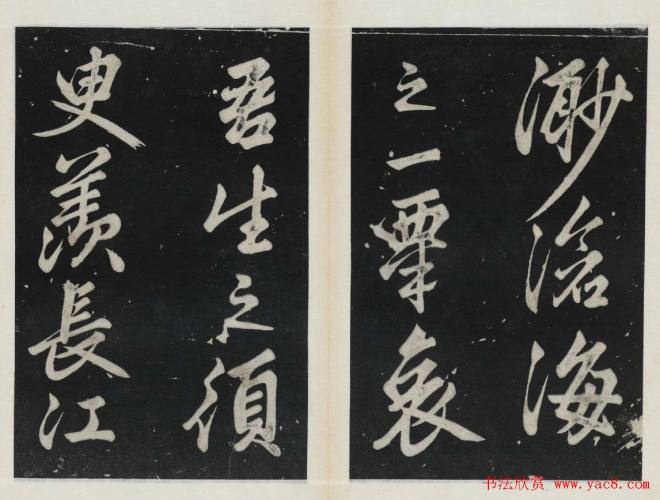 渺滄海
之一粟哀
吾生之須
臾羨長江
书法欣赏 www.yac8.com